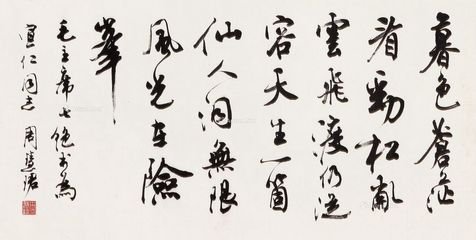 暮色蒼茫
看勁松亂
雲飛渡仍從
容天生一箇
仙人洞無限
風光在險
峯
毛主席七绝书为
宜仁同志 周慧珺